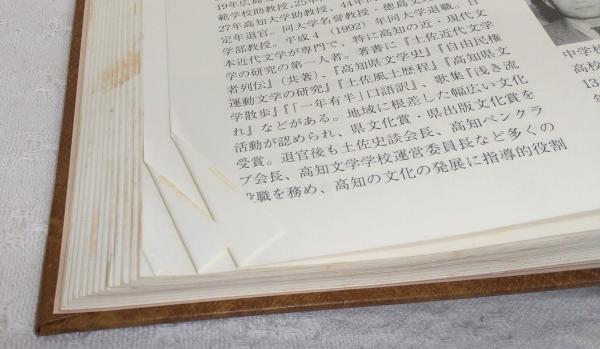 19年広島
範学校助教授、25年
27年高知大学助教授、44年同
定年退官。同大学名誉教授・徳島文
学部教授。平成4（1992）年同大学退職。日
本近代文学が専門で、特に高知の近・現代文
学の研究の第一人者。著書に『土佐近代文学
者列伝』（共著）、『高知県文学史』『自由民権
運動文学の研究』『土佐風土歴程』『高知県文
学散歩』『「一年有半」口語訳』、歌集『浅き流
れ』などがある。地域に根差した幅広い文化
活動が認められ、県文化賞・県出版文化賞を
受賞。退官後も土佐史談会長、高知ペンクラ
ブ会長、高知文学学校運営委員長など多くの
職を務め、高知の文化の発展に指導的役割
中学校
高校
13